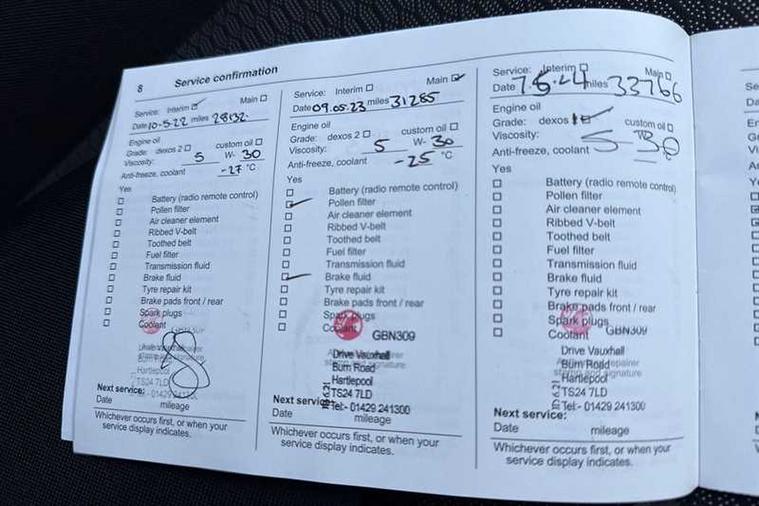 8
Service confirmation
Service: Interim ☑ Main ☐
Date 10-5-22 miles 28132
Engine oil
Grade: dexos 2 ☐ custom oil ☐
Viscosity: 5 W- 30
Anti-freeze, coolant -27 °C
Yes
☐ Battery (radio remote control)
☐ Pollen filter
☐ Air cleaner element
☐ Ribbed V-belt
☐ Toothed belt
☐ Fuel filter
☐ Transmission fluid
☐ Brake fluid
☐ Tyre repair kit
☐ Brake pads front / rear
☐ Spark plugs
☐ Coolant
GBN309
Hartlepool
TS24 7LD
Next service:
Date mileage
Whichever occurs first, or when your
service display indicates.
Service: Interim ☐ Main ☑
Date 09.05.23 miles 31285
Engine oil
Grade: dexos 2 ☐ custom oil ☐
Viscosity: 5 W- 30
Anti-freeze, coolant -25 °C
Yes
☐ Battery (radio remote control)
☑ Pollen filter
☐ Air cleaner element
☐ Ribbed V-belt
☐ Toothed belt
☐ Fuel filter
☐ Transmission fluid
☑ Brake fluid
☐ Tyre repair kit
☐ Brake pads front / rear
☐ Spark plugs
☐ Coolant
GBN309
Drive Vauxhall
Burn Road
Hartlepool
TS24 7LD
Tel:- 01429 241300
Next service:
Date mileage
Whichever occurs first, or when your
service display indicates.
Service: Interim ☐ Main ☐
Date 7.5.24 miles 33766
Engine oil
Grade: dexos custom oil ☐
Viscosity: 5 - 30
Anti-freeze, coolant
Yes
☐ Battery (radio remote control)
☐ Pollen filter
☐ Air cleaner element
☐ Ribbed V-belt
☐ Toothed belt
☐ Fuel filter
☐ Transmission fluid
☐ Brake fluid
☐ Tyre repair kit
☐ Brake pads front / rear
☐ Spark plugs
☐ Coolant
GBN309
Drive Vauxhall
Burn Road
Hartlepool
TS24 7LD
Tel:- 01429 241300
Next service:
Date mileage
Whichever occurs first, or when your
service display indicates.